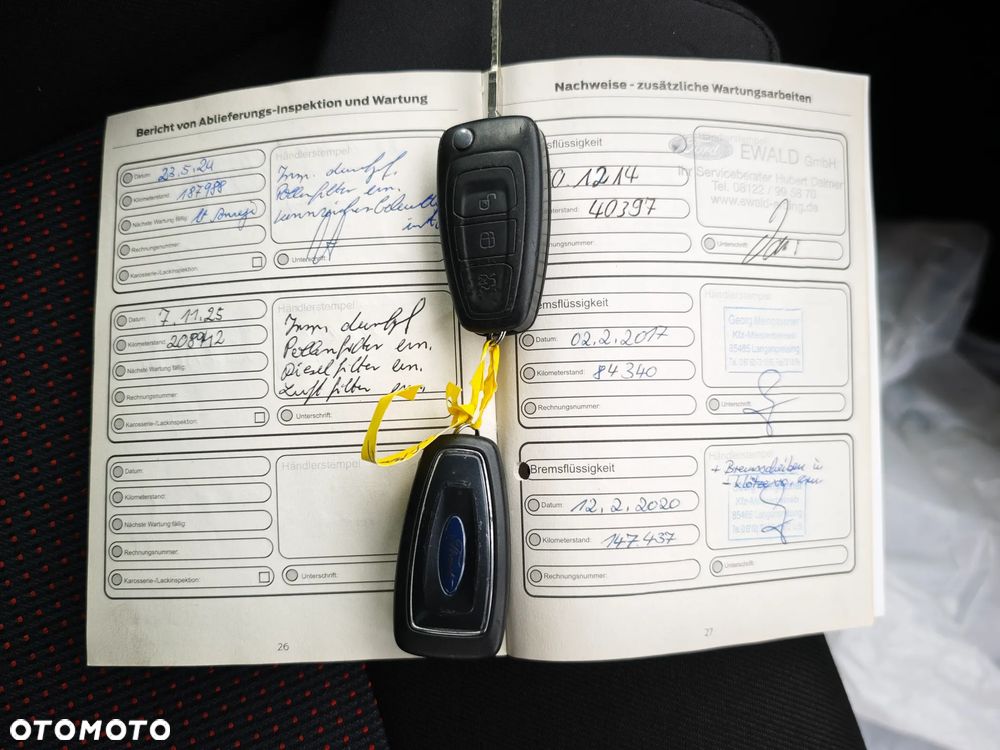 Bericht von Ablieferungs-Inspektion und Wartung
Datum: 23.5.24
Kilometerstand: 187988
Nächste Wartung fällig:
Rechnungsnummer:
Karosserie-/Lackinspektion:
Händlerstempel
Pollenfilter ern.
Unterschrift:
Datum: 7.11.25
Kilometerstand: 208912
Nächste Wartung fällig:
Rechnungsnummer:
Karosserie-/Lackinspektion:
Händlerstempel
Pollenfilter ern.
Dieselfilter ern.
Luftfilter ern.
Unterschrift:
Datum:
Kilometerstand:
Nächste Wartung fällig
Rechnungsnummer:
Karosserie-/Lackinspektion:
Händlerstempel
Unterschrift:
26
Nachweise - zusätzliche Wartungsarbeiten
sflüssigkeit
0.1214
40397
Händlerstempel
Ford EWALD GmbH
Ihr Serviceberater Hubert
Tel. 08122 / 99 58 70
Unterschrift:
emsflüssigkeit
Datum: 02.2.2017
Kilometerstand: 84340
Rechnungsnummer:
Händlerstempel
Georg
Kfz-Meisterbetrieb
85465 Langenpreising
Unterschrift:
Bremsflüssigkeit
Datum: 12.2.2020
Kilometerstand: 147.437
Rechnungsnummer:
Händlerstempel
+ Bremsscheiben u
Kfz-Meisterbetrieb
85465 Langenpreising
Unterschrift:
27
Ford
OTOMOTO